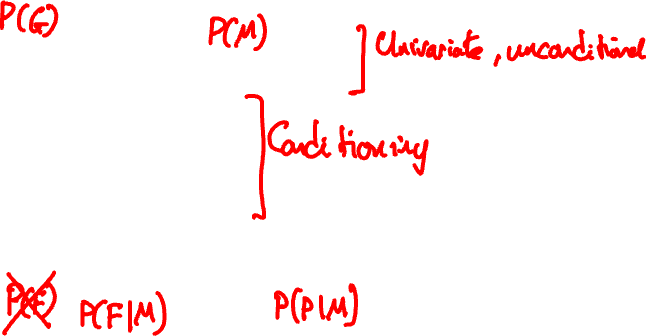 P(G) P(M) Univariate, unconditional
Conditioning
P(F|M) P(P|M]